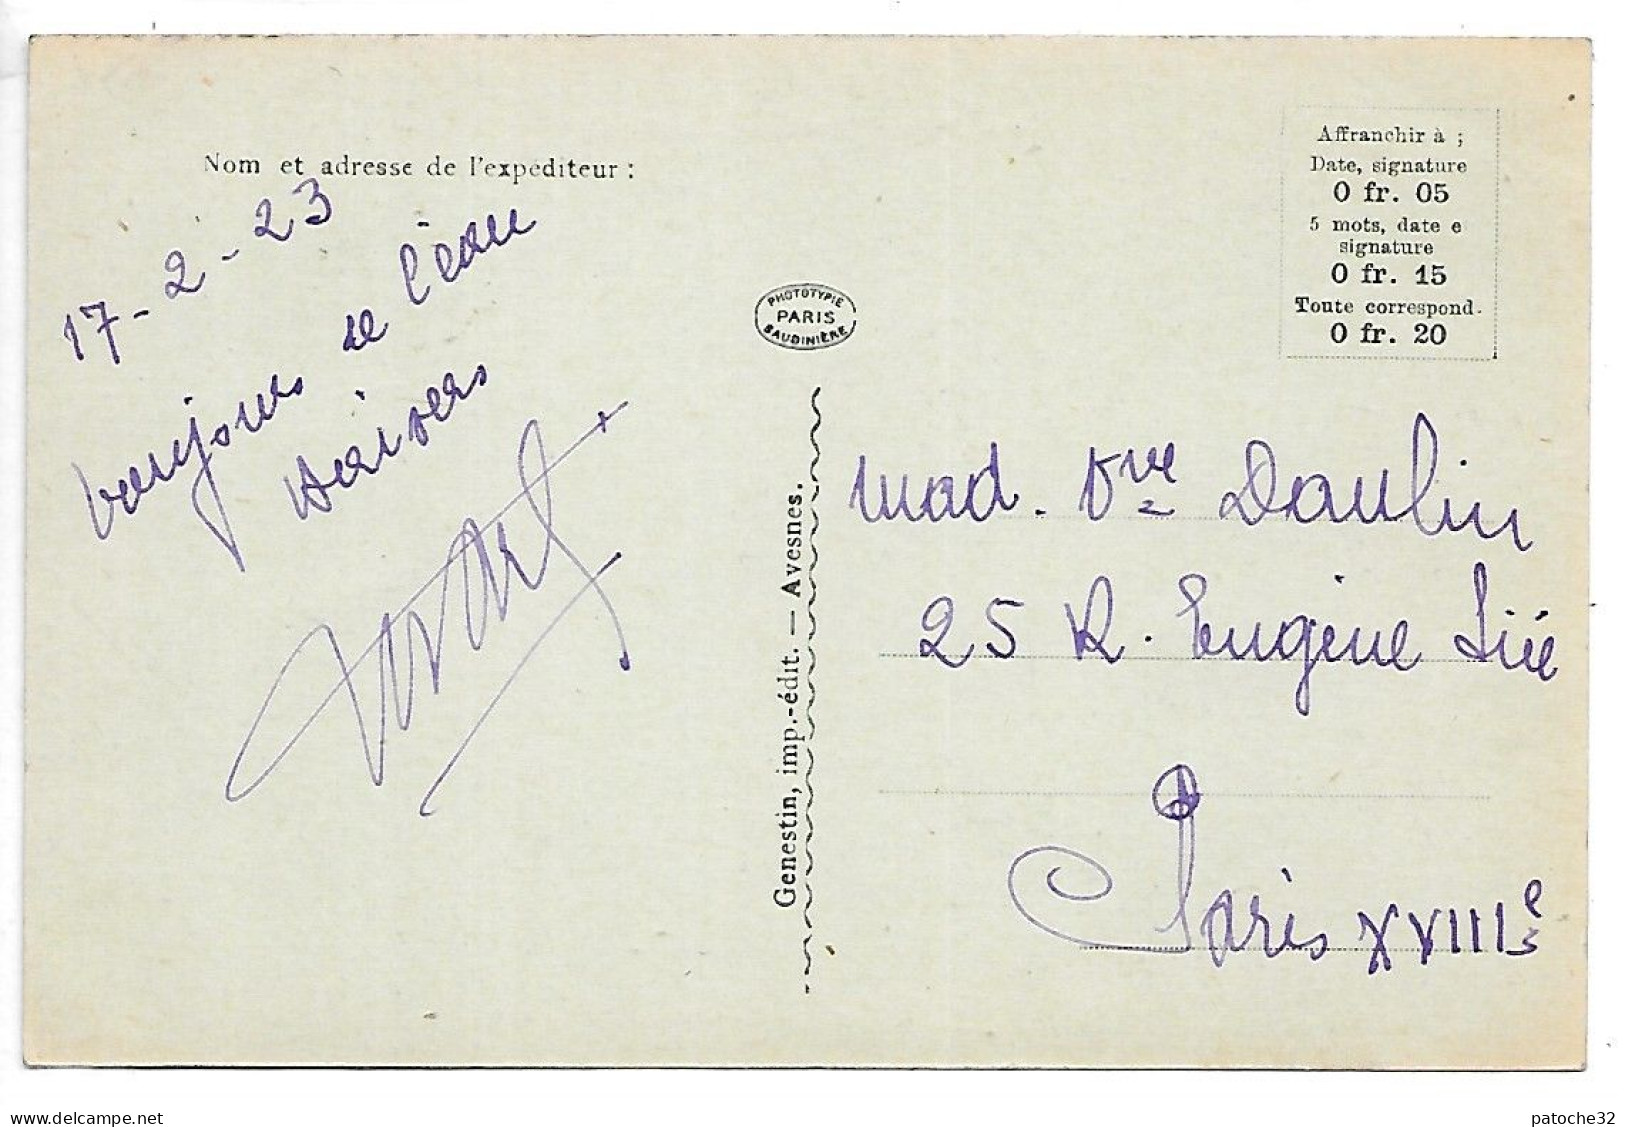 Nom et adresse de l'expéditeur :
17-2-23
bonjour de l'eau
Affranchir à ;
Date, signature
0 fr. 05
5 mots, date e
signature
0 fr. 15
Toute correspond.
0 fr. 20
PHOTOTYPIE
PARIS
BAUDINIÈRE
Genestin, imp.-édit. — Avesnes.
Mad. Vve Daulin
25 R. Eugène Süe
Paris XVIIIe
www.delcampe.net
patoche32